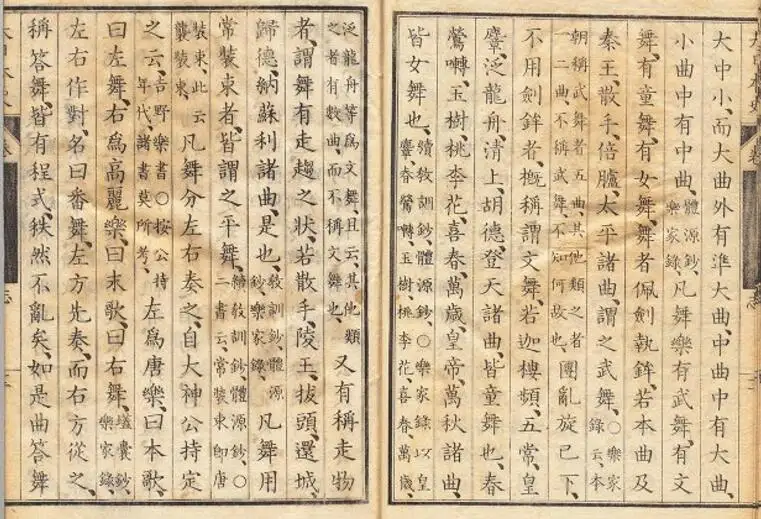 大中小、而大曲外有準大曲、中曲中有大曲、
小曲中有中曲、體源鈔、樂家錄、凡舞樂有武舞、有文
舞、有童舞、有女舞、舞者佩劍執鉾、若本曲及
秦王、散手、倍臚、太平諸曲、謂之武舞、○樂家錄云、本
朝稱武舞者五曲、其他類之者一二曲、不稱武舞、不知何故也、團亂旋已下
不用劍鉾者、概稱謂文舞、若迦樓頻、五常、皇
麞、泛龍舟、清上、胡德、登天諸曲、皆童舞也、春
鶯囀、玉樹、桃李花、喜春、萬歲、皇帝、萬秋諸曲、
皆女舞也、續敎訓鈔、體源鈔、○樂家錄以皇麞、春鶯囀、玉樹、桃李花、喜春、萬歲、
泛龍舟等爲文舞、且云、其他類之者有數曲、而不稱文舞也、又有稱走物
者、謂舞有走趨之狀、若散手、陵王、拔頭、還城、
歸德、納蘇利諸曲、是也、敎訓鈔、體源鈔、樂家錄、凡舞用
常裝束者、皆謂之平舞、續敎訓鈔、體源鈔、○二書云、常裝束、卽唐
裝束、此云襲裝束、凡舞分左右奏之、自大神公持定
之云、吉野樂書○按公持年代、諸書莫所考、左爲唐樂、曰本歌、
曰左舞、右爲高麗樂、曰末歌、曰右舞、壒囊鈔、樂家錄、
左右作對、名曰番舞、左方先奏、而右方從之、
稱答舞、皆有程式、秩然不亂矣、如是曲答舞